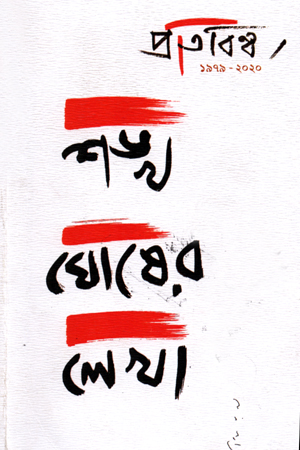 প্রতিবিম্ব
১৯৭৯ - ২০২০
শঙ্খ
ঘোষের
লেখা